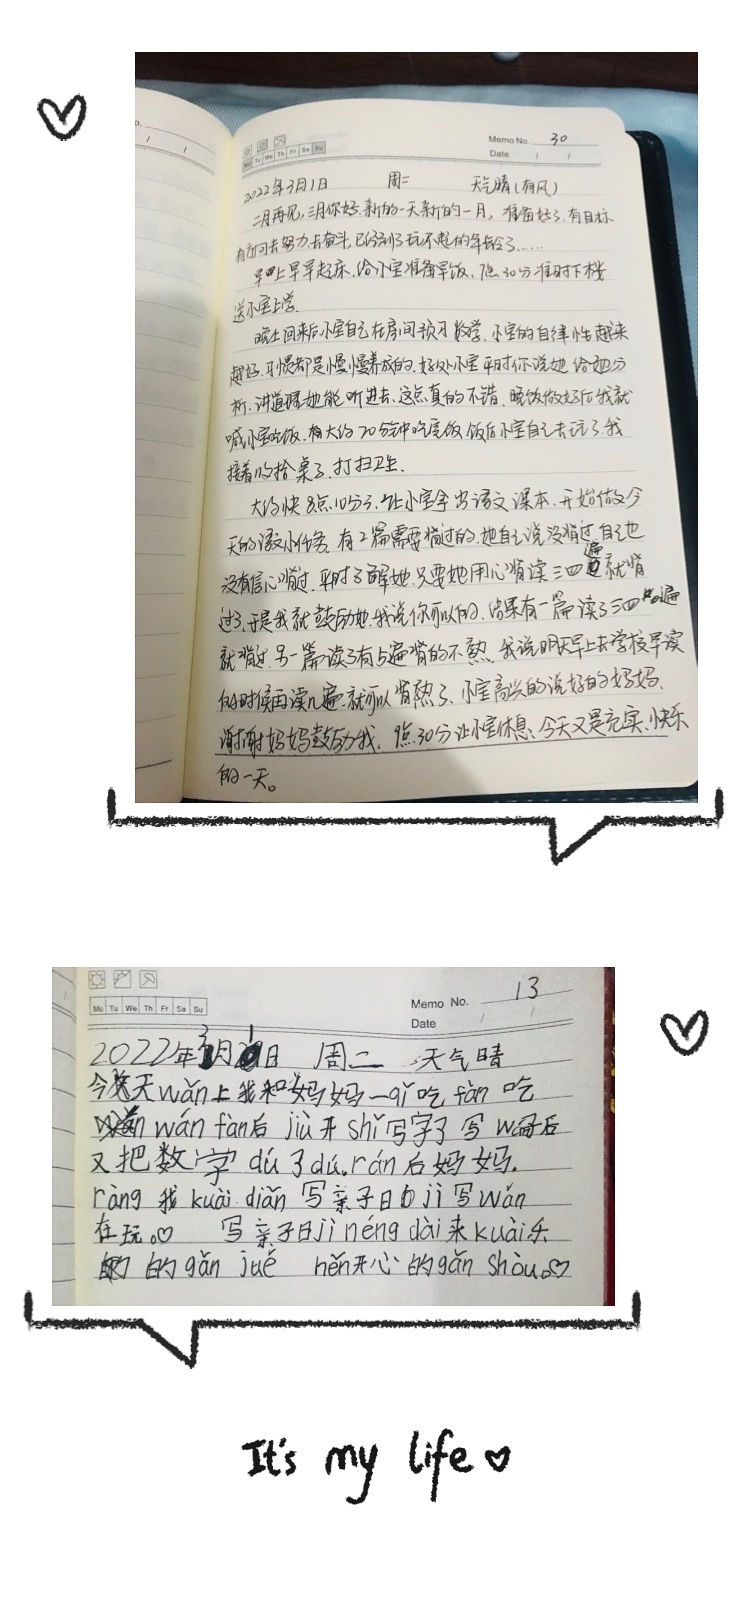 Memo No. 30
Mo Tu We Th Fr Sa Su
Date / /
2022年3月1日 周二 天气晴(有风)
二月再见,三月你好.新的一天新的一月,准备好了.有目标
有方向去努力去奋斗.已经到了玩不起的年龄了……
早上早早起床.给小宝准备早饭,7点30分准时下楼
送小宝上学.
晚上回来后小宝自己在房间预习数学.小宝的自律性越来
越好.习惯都是慢慢养成的.好处小宝平时你说她 给她分
析.讲道理她能听进去.这点真的不错.晚饭做好后我就
喊小宝吃饭.大约20分钟吃完饭 饭后小宝自己去玩了.我
接着收拾桌子.打扫卫生.
大约快8点10分了.让小宝拿出语文课本.开始做今
天的语文小任务.有2篇需要背过的.她自己说没背过.自己也
没有信心背过.平时了解她.只要她用心背读三四遍就背
过了.于是我就鼓励她.我说你可以的.结果有一篇读了三四遍
就背过.另一篇读了有5遍背的不熟.我说明天早上去学校早读
的时候再读几遍.就可以背熟了.小宝高兴的说好的妈妈.
谢谢妈妈鼓励我.9点30分让小宝休息.今天又是充实.快乐
的一天。
Mo Tu We Th Fr Sa Su
Memo No. 13
Date / /
2022年3月1日 周二 天气晴
今天wǎn上我和妈妈一qǐ吃fàn 吃
wán fàn后 jiù开shǐ写字了 写wán后
又把数字dú了dú.rán后妈妈.
ràng 我 kuài diǎn 写亲子日jì写wán
在玩。♡ 写亲子日jì néng dài来kuài乐
的gǎn jué hěn开心的gǎn shòu。♡
It's my life